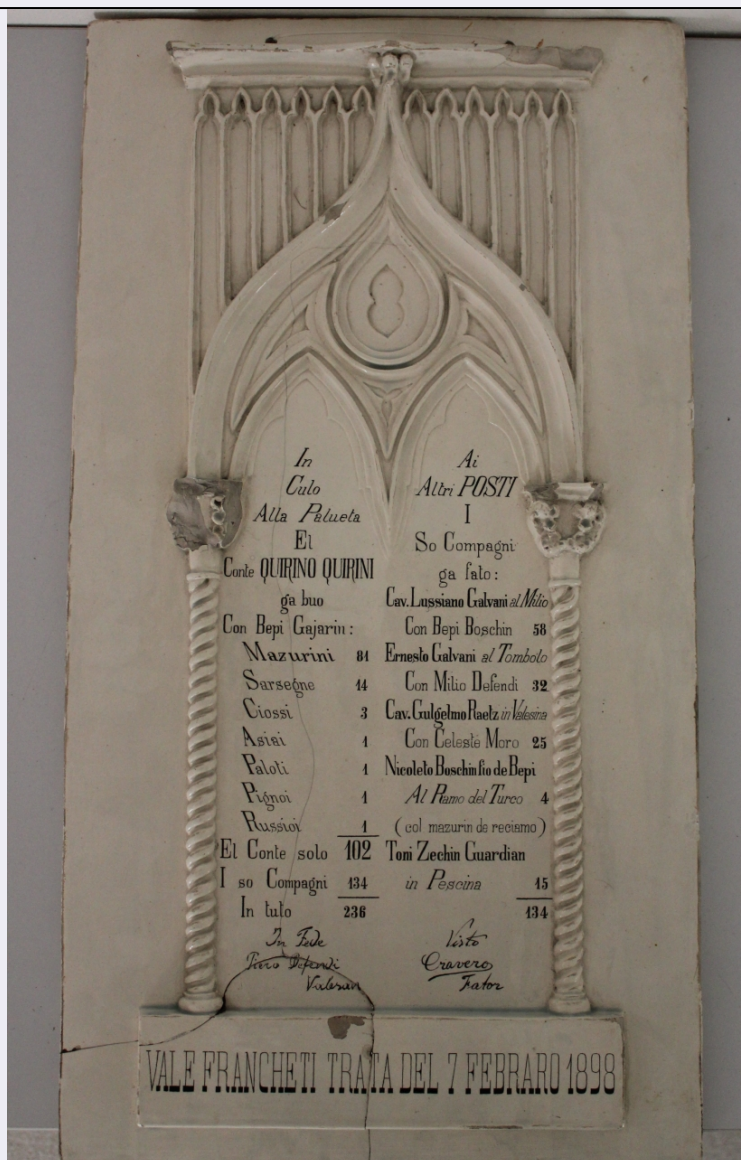 In
Culo
Alla Palueta
El
Conte QUIRINO QUIRINI
ga buo
Con Bepi Gajarin:
Mazurini 81
Sarsegne 14
Ciossi 3
Asiai 1
Paloti 1
Pignoi 1
Russioi 1
El Conte solo 102
I so Compagni 134
In tuto 236
In Fede
Piero Defendi
Valesan
Ai
Altri POSTI
I
So Compagni
ga fato:
Cav. Lussiano Galvani al Milio
Con Bepi Boschin 58
Ernesto Galvani al Tombolo
Con Milio Defendi 32
Cav. Gulgelmo Raetz in Valesina
Con Celeste Moro 25
Nicoleto Boschin fio de Bepi
Al Ramo del Turco 4
(col mazurin de reciamo)
Toni Zechin Guardian
in Pescina 15
134
Visto
Cravero
Fator
VALE FRANCHETI TRATA DEL 7 FEBRARO 1898